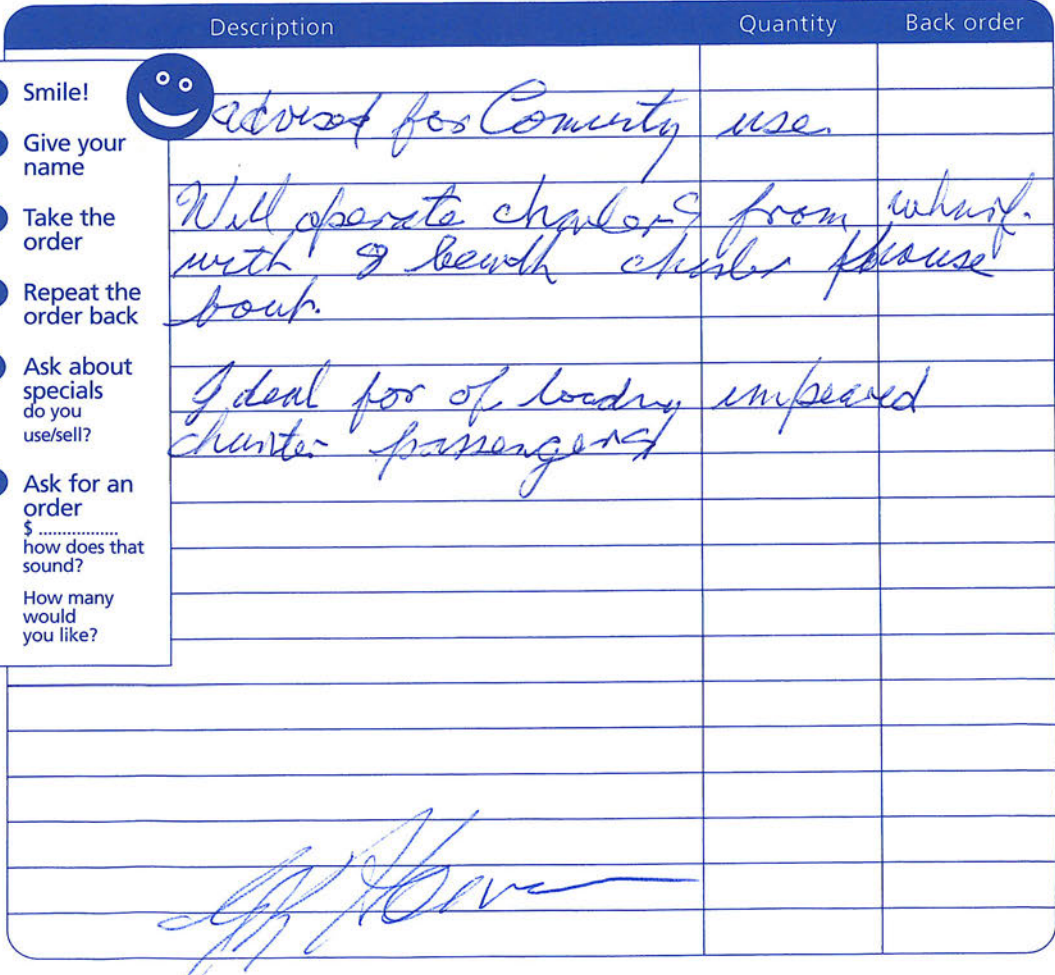 Description Quantity Back order
Smile!
Give your
name
Take the
order
Repeat the
order back
Ask about
specials
do you
use/sell?
Ask for an
order
$ .................
how does that
sound?
How many
would
you like?
advised for Comunty use.
Will operate from wharf.
with charter house
boat.
Ideal for of loading impeared
charter passengers